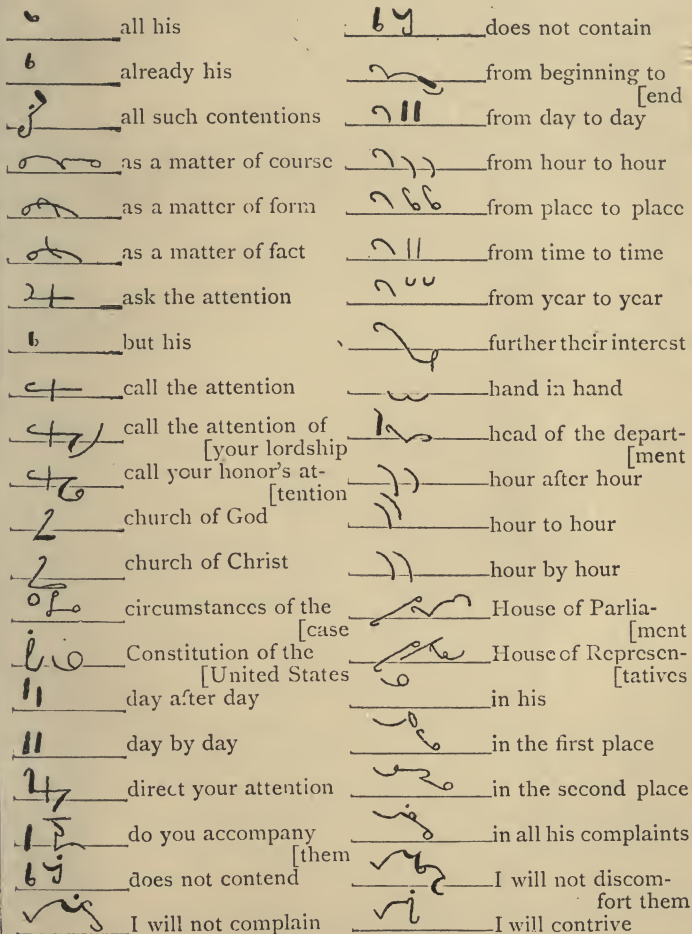 all his
already his
all such contentions
as a matter of course
as a matter of form
as a matter of fact
ask the attention
but his
call the attention
call the attention of
[your lordship
call your honor's at-
[tention
church of God
church of Christ
circumstances of the
[case
Constitution of the
[United States
day after day
day by day
direct your attention
do you accompany
[them
does not contend
I will not complain
does not contain
from beginning to
[end
from day to day
from hour to hour
from place to place
from time to time
from year to year
further their interest
hand in hand
head of the depart-
[ment
hour after hour
hour to hour
hour by hour
House of Parlia-
[ment
House of Represen-
[tatives
in his
in the first place
in the second place
in all his complaints
I will not discom-
fort them
I will contrive